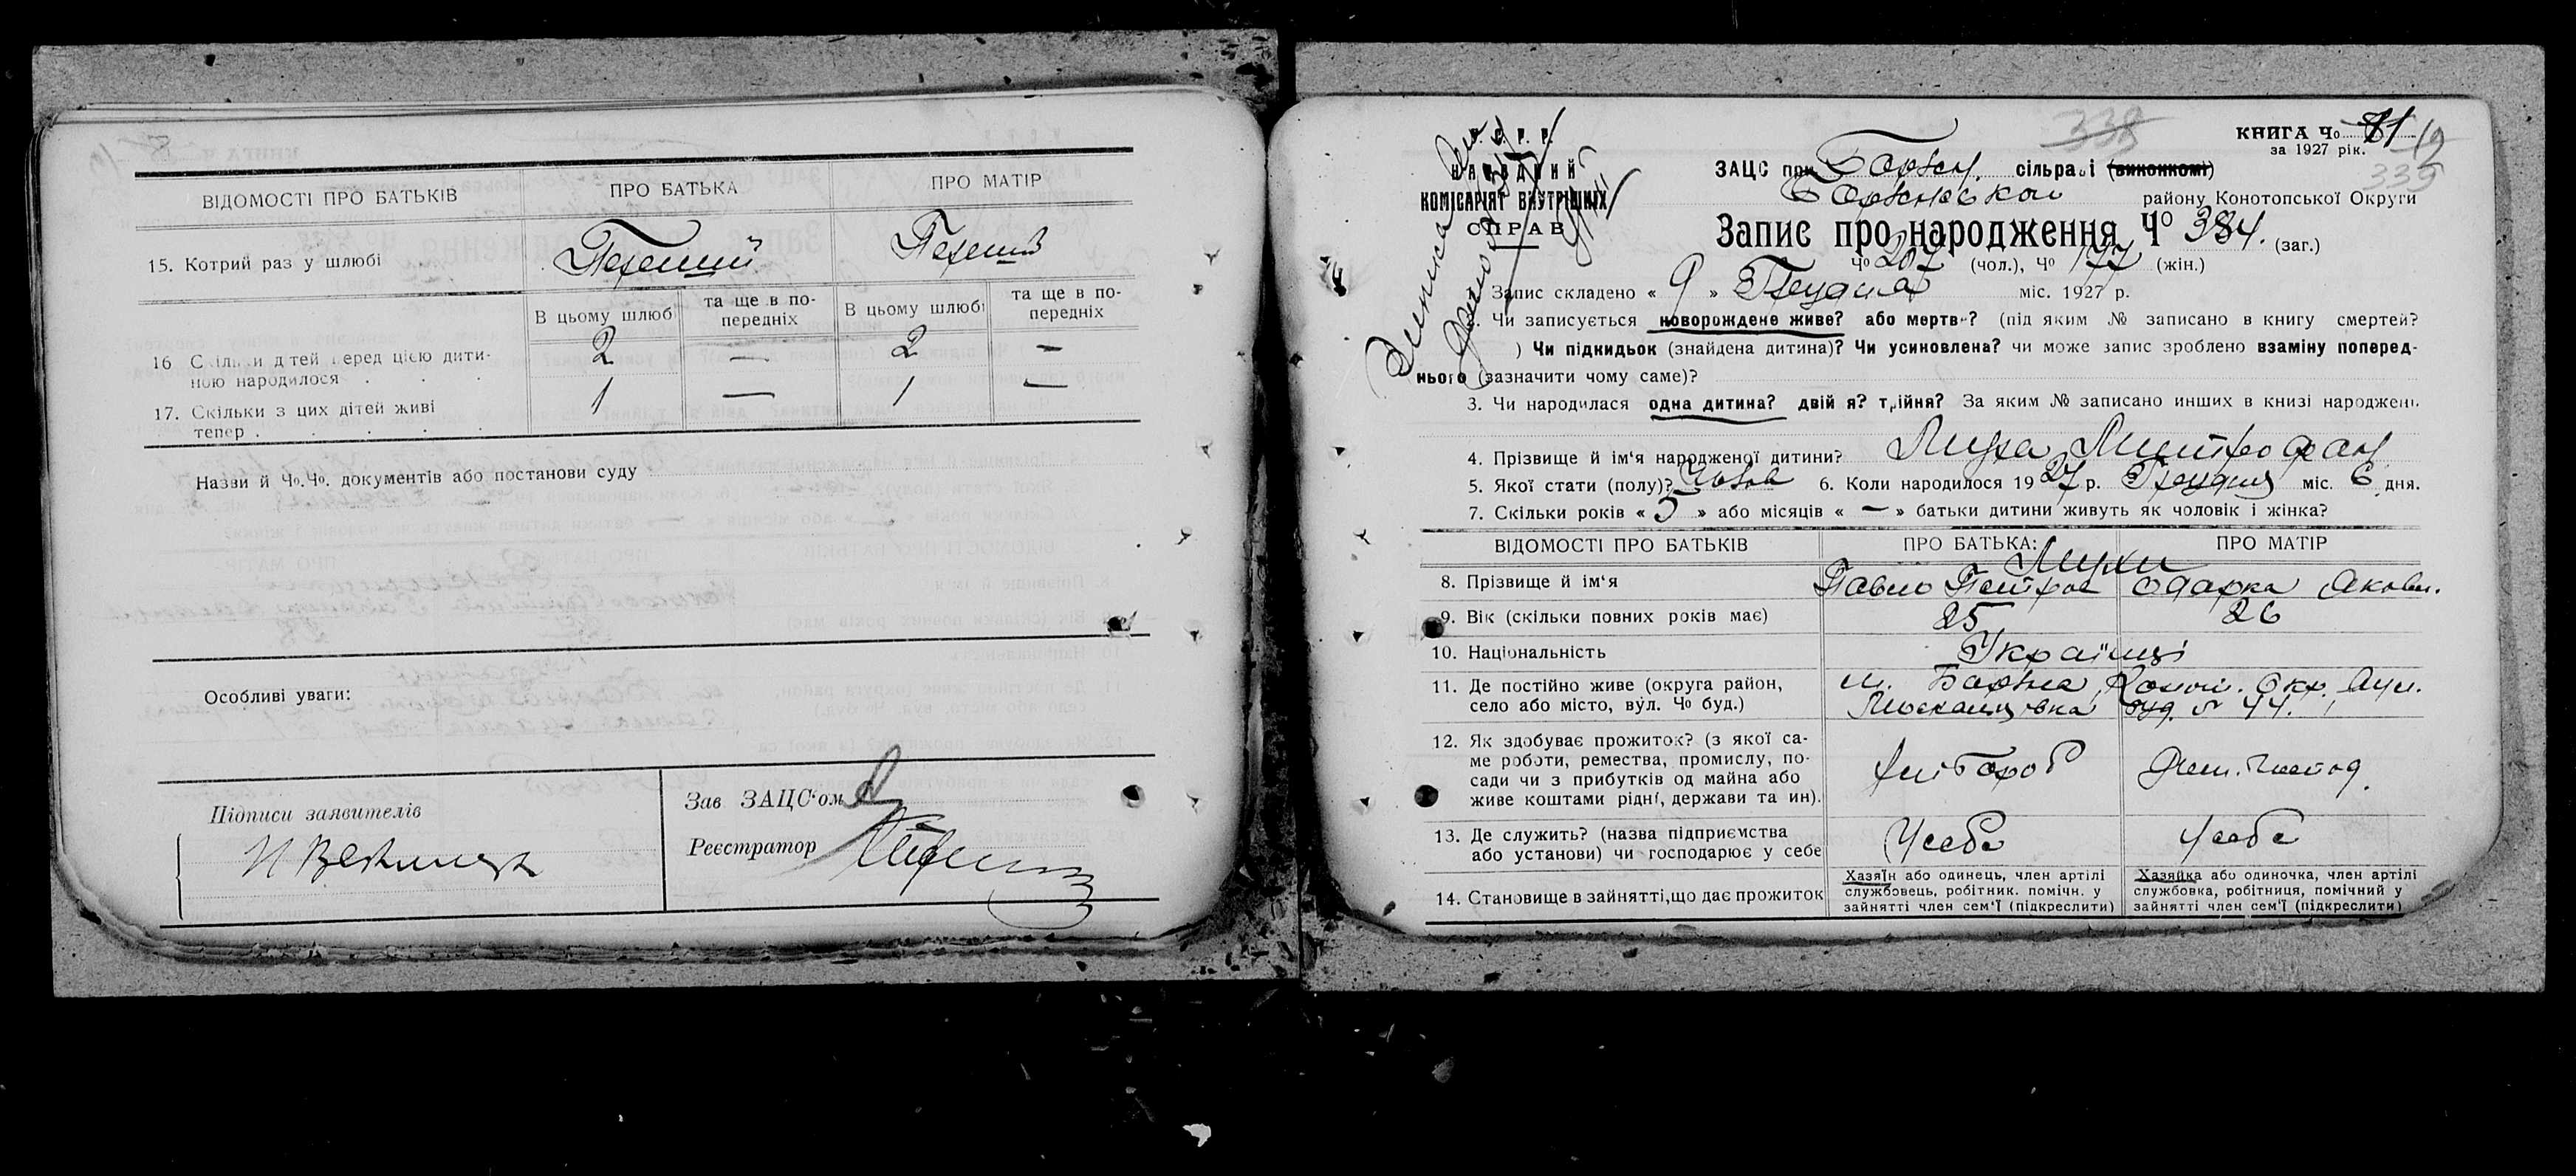 ВІДОМОСТІ ПРО БАТЬКІВ
ПРО БАТЬКА
ПРО МАТІР
15. Котрий раз у шлюбі
Перший
Перший
В цьому шлюбі
та ще в по-
передніх
В цьому шлюбі
та ще в по-
передніх
16 Скільки дітей перед цією дити-
ною народилося . . .
2 — 2 —
17. Скільки з цих дітей живі
тепер . . . . . .
1 — 1 —
Назви й Чо.Чо. документів або постанови суду
Особливі уваги:
Підписи заявителів
Зав ЗАЦС‘ом
Реєстратор
У. С. Р. Р.
НАРОДНИЙ
КОМІСАРІЯТ ВНУТРІШНІХ
СПРАВ
338
КНИГА Чо 81
за 1927 рік.
19
335
ЗАЦС при Борзн. сільраді (виконкомі)
Борзнськом району Конотопської Округи
Запис про народження Чо 384. (заг.)
Чо 207 (чол.), Чо 177 (жін.)
Запис складено « 9 » Грудня міс. 1927 р.
Чи записується новорождене живе? або мертве? (під яким № записано в книгу смертей?
) Чи підкидьок (знайдена дитина)? Чи усиновлена? чи може запис зроблено взаміну поперед-
нього (зазначити чому саме)?
3. Чи народилася одна дитина? двійня? трійня? За яким № записано инших в книзі народжень
4. Прізвище й ім‘я народженої дитини? Муха Митрофан
5. Якої стати (полу)? Чолов 6. Коли народилося 1927 р. Грудня міс. 6 дня.
7. Скільки років « 5 » або місяців « — » батьки дитини живуть як чоловік і жінка?
ВІДОМОСТІ ПРО БАТЬКІВ
ПРО БАТЬКА:
ПРО МАТІР
Мухи
8. Прізвище й ім‘я
Павло Петров
Одарка Яковл.
9. Вік (скільки повних років має)
25
26
10. Національність
Українці
11. Де постійно живе (округа район,
село або місто, вул. Чо буд.)
м. Борзна, Коноп. Окр., вул.
буд. № 44.
12. Як здобуває прожиток? (з якої са-
ме роботи, ремества, промислу, по-
сади чи з прибутків од майна або
живе коштами рідні, держави та ин).
хлібороб
13. Де служить? (назва підприємства
або установи) чи господарює у себе
У себе
У себе
14. Становище в зайнятті, що дає прожиток
Хазяїн або одинець, член артілі
службовець, робітник. помічн. у
зайнятті член сем‘ї (підкреслити)
Хазяйка або одиночка, член артілі
службовка, робітниця, помічний у
зайнятті член сем‘ї (підкреслити)